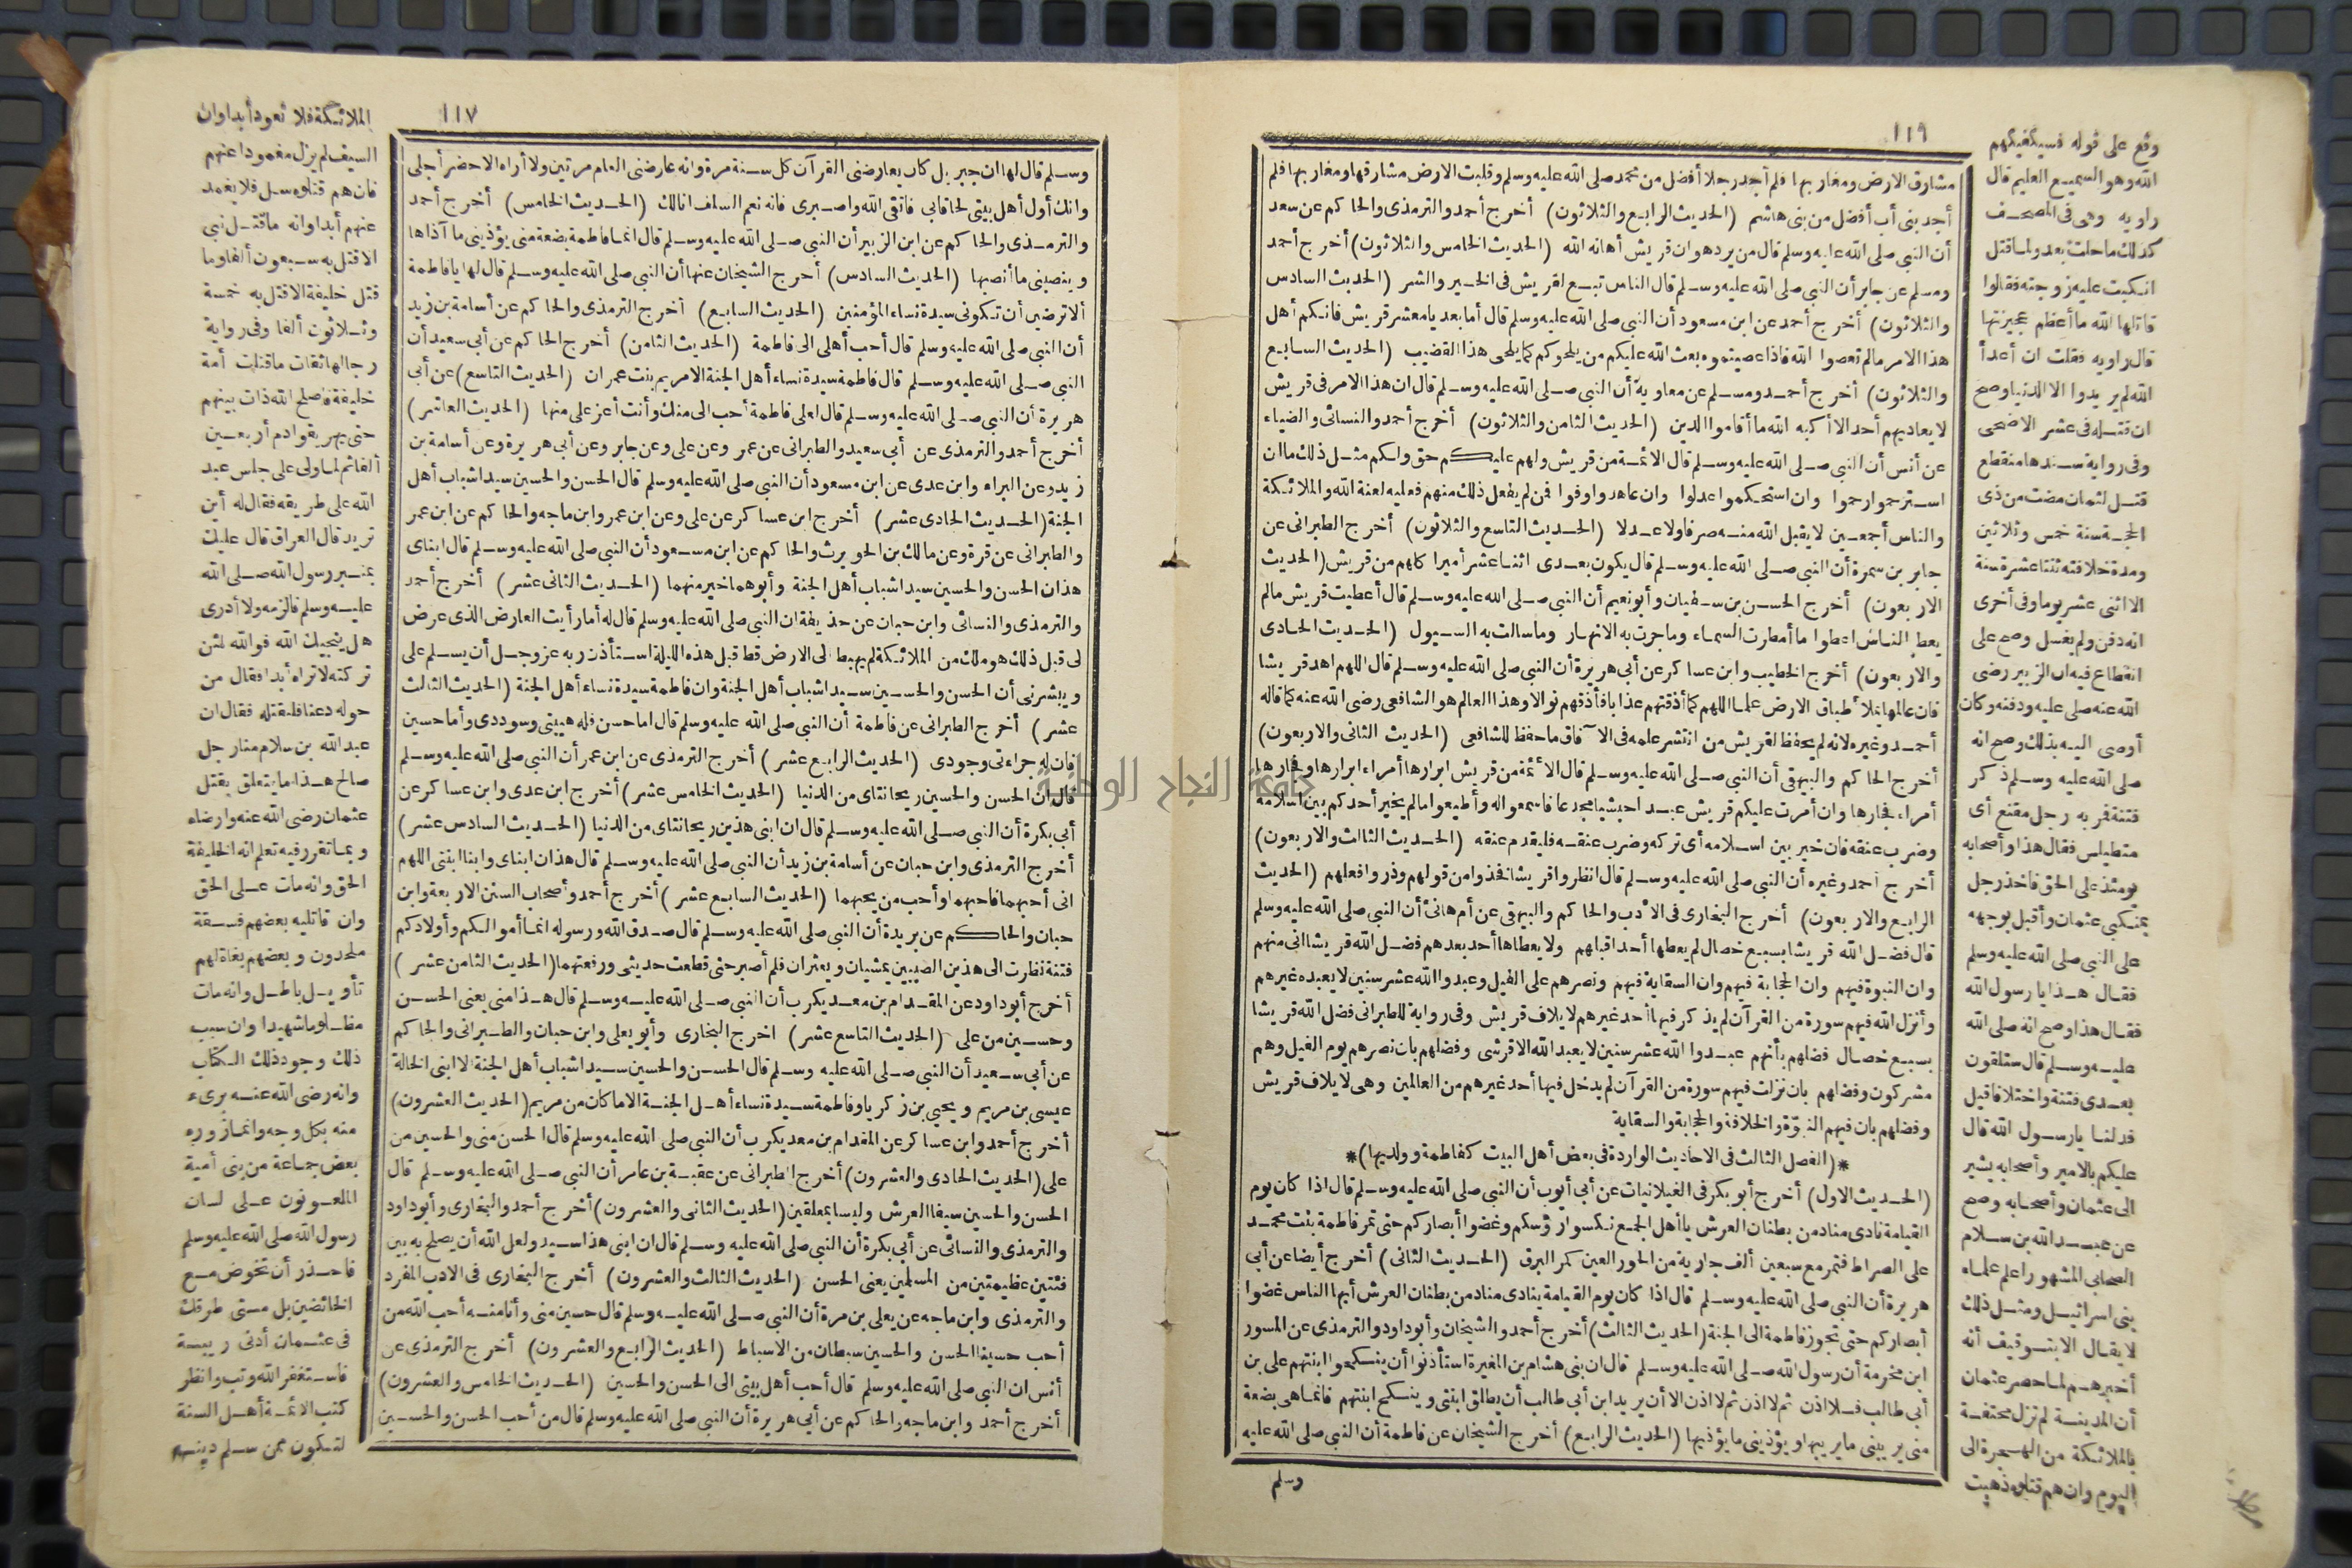 ١١٩
مشارق الارض ومغاربها فلم أجد رجلا أفضل من محمد صلى الله عليه وسلم وقلبت الارض مشارقها ومغاربها فلم
أجد بنى أب أفضل من بنى هاشم (الحديث الرابع والثلاثون) أخرج أحمد والترمذى والحاكم عن سعد
أن النبى صلى الله عليه وسلم قال من يرد هوان قريش أهانه الله (الحديث الخامس والثلاثون) أخرج أحمد
ومسلم عن جابر أن النبى صلى الله عليه وسلم قال الناس تبع لقريش فى الخير والشر (الحديث السادس
والثلاثون) أخرج أحمد عن ابن مسعود أن النبى صلى الله عليه وسلم قال أما بعد يا معشر قريش فانكم أهل
هذا الامر مالم تعصوا الله فاذا عصيتموه بعث الله عليكم من يلحوكم كما يلحى هذا القضيب (الحديث السابع
والثلاثون) أخرج أحمد ومسلم عن معاوية أن النبى صلى الله عليه وسلم قال ان هذا الامر فى قريش
لا يعاديهم أحد الا أكبه الله ما أقاموا الدين (الحديث الثامن والثلاثون) أخرج أحمد والنسائى والضياء
عن أنس أن النبى صلى الله عليه وسلم قال الائمة من قريش ولهم عليكم حق ولكم مثل ذلك ماان
استرحموا رحموا وان استحكموا عدلوا وان عاهدوا وفوا فمن لم يفعل ذلك منهم فعليه لعنة الله والملائكة
والناس أجمعين لا يقبل الله منه صرفا ولا عدلا (الحديث التاسع والثلاثون) أخرج الطبرانى عن
جابر بن سمرة أن النبى صلى الله عليه وسلم قال يكون بعدى اثنا عشر أميرا كلهم من قريش (الحديث
الاربعون) أخرج الحسن بن سفيان وأبو نعيم أن النبى صلى الله عليه وسلم قال أعطيت قريش مالم
يعط الناس اعطوا ما أمطرت السماء وما جرت به الانهار وما سالت به السيول (الحديث الحادى
والاربعون) أخرج الخطيب وابن عساكر عن أبى هريرة أن النبى صلى الله عليه وسلم قال اللهم اهد قريشا
فان عالمها يملأ طباق الارض علما اللهم كما أذقتهم عذابا فأذقهم نوالا وهذا العالم هو الشافعى رضى الله عنه كما قاله
أحمد وغيره لانه لم يحفظ لقريش من انتشر علمه فى الآفاق ما حفظ للشافعى (الحديث الثانى والاربعون)
أخرج الحاكم والبيهقى أن النبى صلى الله عليه وسلم قال الأئمة من قريش ابرارها أمراء ابرارها وفجارها
أمراء فجارها وان أمرت عليكم قريش عبدا حبشيا مجدعا فاسمعوا له وأطيعوا مالم يخير أحدكم بين اسلامه
وضرب عنقه فان خير بين اسلامه أى تركه وضرب عنقه فليقدم عنقه (الحديث الثالث والاربعون)
أخرج أحمد وغيره أن النبى صلى الله عليه وسلم قال انظروا قريشا فخذوا من قولهم وذروا فعلهم (الحديث
الرابع والاربعون) أخرج البخارى فى الأدب والحاكم والبيهقى عن أم هانئ أن النبى صلى الله عليه وسلم
قال فضل الله قريشا بسبع خصال لم يعطها أحد قبلهم ولا يعطاها أحد بعدهم فضل الله قريشا انى منهم
وان النبوة فيهم وان الحجابة فيهم وان السقاية فيهم ونصرهم على الفيل وعبدوا الله عشر سنين لا يعبده غيرهم
وأنزل الله فيهم سورة من القرآن لم يذكر فيها أحد غيرهم لايلاف قريش وفى رواية للطبرانى فضل الله قريشا
بسبع خصال فضلهم بأنهم عبدوا الله عشر سنين لا يعبد الله الا قرشى وفضلهم بان نصرهم يوم الفيل وهم
مشركون وفضلهم بان نزلت فيهم سورة من القرآن لم يدخل فيها أحد غيرهم من العالمين وهى لايلاف قريش
وفضلهم بان فيهم النبوّة والخلافة والحجابة والسقاية
*(الفصل الثالث فى الاحاديث الواردة فى بعض أهل البيت كفاطمة وولديها)*
(الحديث الاول) أخرج أبو بكر فى الغيلانيات عن أبى أيوب أن النبى صلى الله عليه وسلم قال اذا كان يوم
القيامة نادى مناد من بطنان العرش يا أهل الجمع نكسوا رؤسكم وغضوا أبصاركم حتى تمر فاطمة بنت محمد
على الصراط فتمر مع سبعين ألف جارية من الحور العين كمر البرق (الحديث الثانى) أخرج أيضا عن أبى
هريرة أن النبى صلى الله عليه وسلم قال اذا كان يوم القيامة ينادى مناد من بطنان العرش أيها الناس غضوا
أبصاركم حتى تجوز فاطمة الى الجنة (الحديث الثالث) أخرج أحمد والشيخان وأبو داود والترمذى عن المسور
ابن مخرمة أن رسول الله صلى الله عليه وسلم قال ان بنى هشام بن المغيرة استأذنوا أن ينكحوا ابنتهم على بن
أبى طالب فلا اذن ثم لا اذن ثم لا اذن الا أن يريد ابن أبى طالب أن يطلق ابنتى وينكح ابنتهم فانما هى بضعة
منى يريبنى ما يريبها ويؤذينى ما يؤذيها (الحديث الرابع) أخرج الشيخان عن فاطمة أن النبى صلى الله عليه
وسلم
وقع على قوله فسيكفيكهم
الله وهو السميع العليم قال
راويه وهى فى المصحف
كذلك ما حلت بعد ولما قتل
انكبت عليه زوجته فقالوا
قاتلها الله ما أعظم عجيزتها
قال راويه فقلت ان أعدأ
الله لم يريدوا الا الدنيا وصح
ان قتله فى عشر الاضحى
وفى رواية سندها منقطع
قتل لثمان مضت من ذى
الحجة سنة خمس وثلاثين
ومدة خلافته ثنتا عشرة سنة
الا اثنى عشر يوما وفى أخرى
انه دفن ولم يغسل وصح على
انقطاع فيه ان الزبير رضى
الله عنه صلى عليه ودفنه وكان
أوصى اليه بذلك وصح انه
صلى الله عليه وسلم ذكر
فتنة فمر به رجل مقنع أى
متطيلس فقال هذا وأصحابه
يومئذ على الحق فاخذ رجل
بمنكبى عثمان وأقبل بوجهه
على النبى صلى الله عليه وسلم
فقال هذا يا رسول الله
فقال هذا وصح انه صلى الله
عليه وسلم قال ستلقون
بعدى فتنة واختلافا قيل
فدلنا يا رسول الله قال
عليكم بالامير وأصحابه يشير
الى عثمان وأصحابه وصح
عن عبد الله بن سلام
الصحابى المشهور اعلم علماء
بنى اسرائيل ومثل ذلك
لا يقال الا بتوقيف أنه
أخبرهم لما حصر عثمان
أن المدينة لم تزل محتفة
بالملائكة من الهجرة الى
اليوم وان هم قتلوه ذهبت
١١٧
وسلم قال لها ان جبريل كان يعارضنى القرآن كل سنة مرة وانه عارضنى العام مرتين ولا أراه الا حضر أجلى
وانك أول أهل بيتى لحاقا بى فاتقى الله واصبرى فانه نعم السلف انا لك (الحديث الخامس) أخرج أحمد
والترمذى والحاكم عن ابن الزبير أن النبى صلى الله عليه وسلم قال انما فاطمة بضعة منى يؤذينى ما آذاها
وينصبنى ما أنصبها (الحديث السادس) أخرج الشيخان عنها أن النبى صلى الله عليه وسلم قال لها يا فاطمة
ألا ترضين أن تكونى سيدة نساء المؤمنين (الحديث السابع) أخرج الترمذى والحاكم عن أسامة بن زيد
أن النبى صلى الله عليه وسلم قال أحب أهلى الى فاطمة (الحديث الثامن) أخرج الحاكم عن أبى سعيد أن
النبى صلى الله عليه وسلم قال فاطمة سيدة نساء أهل الجنة الا مريم بنت عمران (الحديث التاسع) عن أبى
هريرة أن النبى صلى الله عليه وسلم قال لعلى فاطمة أحب الى منك وأنت أعز على منها (الحديث العاشر)
أخرج أحمد والترمذى عن أبى سعيد والطبرانى عن عمر وعن على وعن جابر وعن أبى هريرة وعن أسامة بن
زيد وعن البراء وابن عدى عن ابن مسعود أن النبى صلى الله عليه وسلم قال الحسن والحسين سيدا شباب أهل
الجنة (الحديث الحادى عشر) أخرج ابن عساكر عن على وعن ابن عمر وابن ماجه والحاكم عن ابن عمر
والطبرانى عن قرة وعن مالك بن الحويرث والحاكم عن ابن مسعود أن النبى صلى الله عليه وسلم قال ابناى
هذان الحسن والحسين سيدا شباب أهل الجنة وأبوهما خير منهما (الحديث الثانى عشر) أخرج أحمد
والترمذى والنسائى وابن حبان عن حذيفة ان النبى صلى الله عليه وسلم قال له أما رأيت العارض الذى عرض
لى قبل ذلك هو ملك من الملائكة لم يهبط الى الارض قط قبل هذه الليلة استأذن ربه عز وجل أن يسلم على
ويبشرنى أن الحسن والحسين سيدا شباب أهل الجنة وان فاطمة سيدة نساء أهل الجنة (الحديث الثالث
عشر) أخرج الطبرانى عن فاطمة أن النبى صلى الله عليه وسلم قال اما حسن فله هيبتى وسوددى وأما حسين
فان له جراءتى وجودى (الحديث الرابع عشر) أخرج الترمذى عن ابن عمر أن النبى صلى الله عليه وسلم
قال ان الحسن والحسين ريحانتاى من الدنيا (الحديث الخامس عشر) أخرج ابن عدى وابن عساكر عن
أبى بكرة أن النبى صلى الله عليه وسلم قال ان ابنى هذين ريحانتاى من الدنيا (الحديث السادس عشر)
أخرج الترمذى وابن حبان عن أسامة بن زيد أن النبى صلى الله عليه وسلم قال هذان ابناى وابنا ابنتى اللهم
انى أحبهما فاحبهما وأحب من يحبهما (الحديث السابع عشر) أخرج أحمد وأصحاب السنن الاربعة وابن
حبان والحاكم عن بريدة أن النبى صلى الله عليه وسلم قال صدق الله ورسوله انما أموالكم وأولادكم
فتنة نظرت الى هذين الصبيين يمشيان ويعثران فلم أصبر حتى قطعت حديثى ورفعتهما (الحديث الثامن عشر)
أخرج أبو داود عن المقدام بن معديكرب أن النبى صلى الله عليه وسلم قال هذا منى يعنى الحسن
وحسين من على (الحديث التاسع عشر) اخرج البخارى وأبو يعلى وابن حبان والطبرانى والحاكم
عن أبى سعيد أن النبى صلى الله عليه وسلم قال الحسن والحسين سيدا شباب أهل الجنة الا ابنى الخالة
عيسى بن مريم ويحيى بن زكريا وفاطمة سيدة نساء أهل الجنة الا ما كان من مريم (الحديث العشرون)
أخرج أحمد وابن عساكر عن المقدام بن معديكرب أن النبى صلى الله عليه وسلم قال الحسن منى والحسين من
على (الحديث الحادى والعشرون) أخرج الطبرانى عن عقبة بن عامر أن النبى صلى الله عليه وسلم قال
الحسن والحسين سيفا العرش وليسا بمعلقين (الحديث الثانى والعشرون) أخرج أحمد والبخارى وأبو داود
والترمذى والنسائى عن أبى بكرة أن النبى صلى الله عليه وسلم قال ان ابنى هذا سيد ولعل الله أن يصلح به بين
فئتين عظيمتين من المسلمين يعنى الحسن (الحديث الثالث والعشرون) أخرج البخارى فى الادب المفرد
والترمذى وابن ماجه عن يعلى بن مرة أن النبى صلى الله عليه وسلم قال حسين منى وأنا منه أحب الله من
أحب حسينا الحسن والحسين سبطان من الاسباط (الحديث الرابع والعشرون) أخرج الترمذى عن
أنس ان النبى صلى الله عليه وسلم قال أحب أهل بيتى الى الحسن والحسين (الحديث الخامس والعشرون)
أخرج أحمد وابن ماجه والحاكم عن أبى هريرة أن النبى صلى الله عليه وسلم قال من أحب الحسن والحسين
الملائكة فلا تعود أبدا وان
السيف لم يزل مغمودا عنهم
فان هم قتلوه سل فلا يغمد
عنهم أبدا وانه ما قتل نبى
الا قتل به سبعون ألفا وما
قتل خليفة الا قتل به خمسة
وثلاثون ألفا وفى رواية
رجالها ثقات ما قتلت أمة
خليفة فاصلح الله ذات بينهم
حتى يهريقوا دم أربعين
ألفا ثم لما ولى على جلس عبد
الله على طريقه فقال له أين
تريد قال العراق قال عليك
بمنبر رسول الله صلى الله
عليه وسلم فالزمه ولا أدرى
هل ينجيك الله فوالله لئن
تركته لا تراه أبدا فقال من
حوله دعنا فلنقتله فقال ان
عبد الله بن سلام منا رجل
صالح هذا ما يتعلق بقتل
عثمان رضى الله عنه وارضاه
وبما تقرر فيه تعلم انه الخليفة
الحق وانه مات على الحق
وان قاتليه بعضهم فسقة
ملحدون وبعضهم بغاة لهم
تأويل باطل وانه مات
مظلوما شهيدا وان سبب
ذلك وجود ذلك الكتاب
وانه رضى الله عنه برىء
منه بكل وجه وانما زوره
بعض جماعة من بنى أمية
الملعونون على لسان
رسول الله صلى الله عليه وسلم
فاحذر أن تخوض مع
الخائضين بل متى طرقك
فى عثمان أدنى ريبة
فاستغفر الله وتب وانظر
كتب الائمة أهل السنة
لتكون ممن سلم دينهم
جامعة النجاح الوطنية